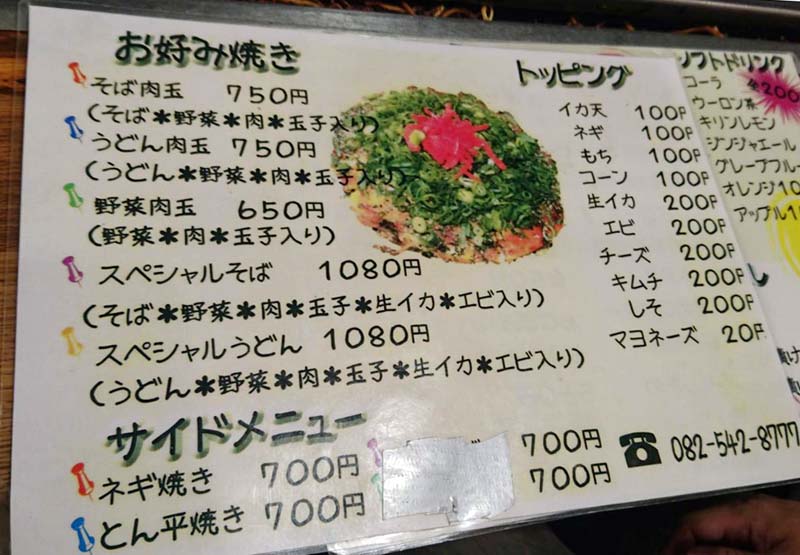 お好み焼き
そば肉玉 750円
(そば*野菜*肉*玉子入り)
うどん肉玉 750円
(うどん*野菜*肉*玉子入り)
野菜肉玉 650円
(野菜*肉*玉子入り)
スペシャルそば 1080円
(そば*野菜*肉*玉子*生イカ*エビ入り)
スペシャルうどん 1080円
(うどん*野菜*肉*玉子*生イカ*エビ入り)
サイドメニュー
ネギ焼き 700円
とん平焼き 700円
700円
700円
トッピング
イカ天 100円
ネギ 100円
もち 100円
コーン 100円
生イカ 200円
エビ 200円
チーズ 200円
キムチ 200円
しそ 200円
マヨネーズ 20円
☎ 082-542-8777
ソフトドリンク
コーラ
ウーロン茶
キリンレモン
ジンジャエール
グレープフルー
オレンジ
アップル